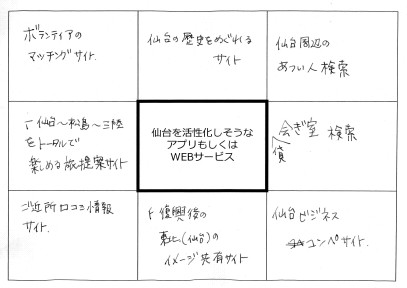 ボランティアの
マッチングサイト.
仙台の歴史をめぐれる
サイト
仙台周辺の
あつい人検索
仙台〜松島〜三陸
をトータルで
楽しめる旅提案サイト
仙台を活性化しそうな
アプリもしくは
WEBサービス
貸
会ぎ室 検索
ご近所口コミ情報
サイト.
復興後の
東北(仙台)の
イメージ共有サイト
仙台ビジネス
コンペサイト.